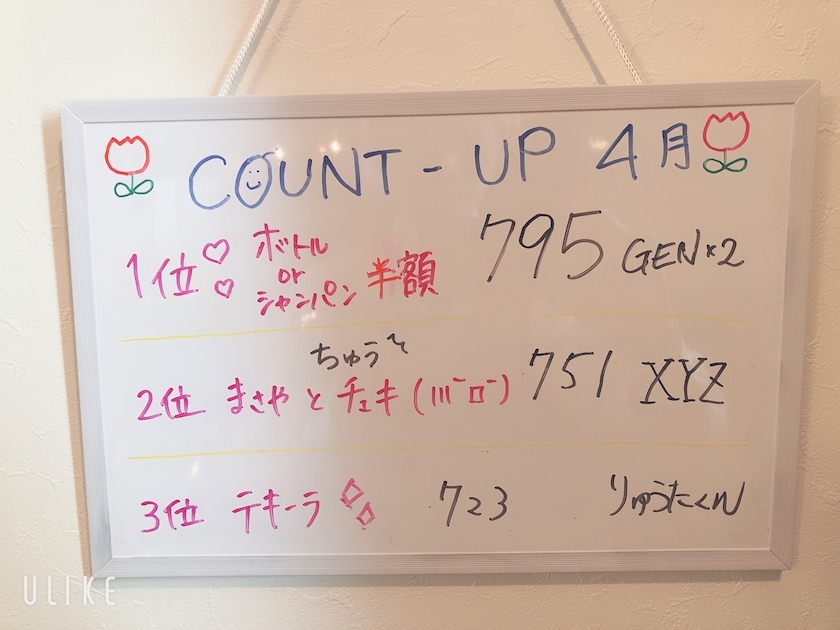 COUNT-UP 4月
1位 ボトル or シャンパン 半額 795 GEN×2
ちゅう
2位 まさやとチェキ (川ーロー) 751 XYZ
3位 テキーラ 723 りゅうたくん
ULIKE